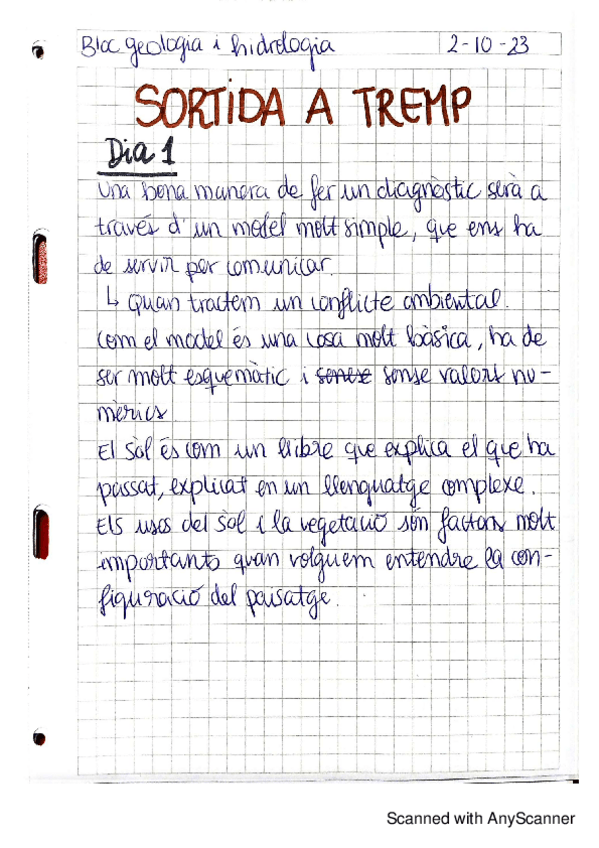 Bloc geologia i hidrologia 2-10-23
SORTIDA A TREMP
Dia 1
Una bona manera de fer un diagnòstic serà a
través d'un model molt simple, que ens ha
de servir per comunicar.
↳ Quan tractem un conflicte ambiental.
Com el model és una cosa molt bàsica, ha de
ser molt esquemàtic i sense valors nu-
mèrics
El sòl és com un llibre que explica el que ha
passat, explicat en un llenguatge complexe.
Els usos del sòl i la vegetació són factors molt
importants quan volguem entendre la con-
figuració del paisatge.
Scanned with AnyScanner